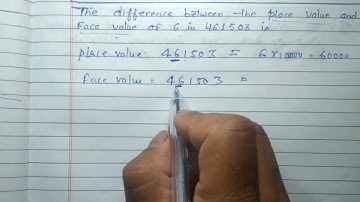 The difference between the place value and
Face value of 6 in 461503 is
place value 461503 = 6×10000 = 60000
face value = 461503 =